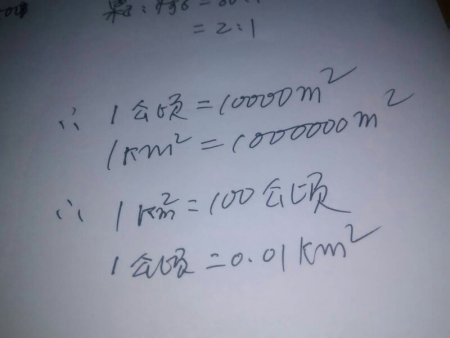 = 2:1
∵ 1公顷=10000m²
1km²=1000000m²
∴ 1km²=100公顷
1公顷=0.01km²